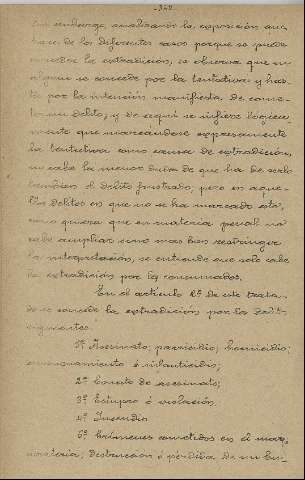 -342-
Sin embargo, analizando la exposición que
hace de los diferentes casos porque se puede
conceder la extradición, se observa que en
algunos se concede por la tentativa y has-
ta por la intención manifiesta de come-
ter un delito; y de aquí se infiere lógica-
mente que marcandose expresamente
la tentativa como causa de extradición,
no cabe la menor duda de que ha de serlo
tambien el delito frustrado; pero en aque-
llos delitos en que no se ha marcado esto,
como quiera que en materia penal no
cabe ampliar sino mas bien restringir
la interpretación, se entiende que solo cabe
la extradición por los consumados.
En el artículo 2º de este trata-
do se concede la extradición por los
siguientes:
1º Asesinato; parricidio; homicidio;
envenenamiento é infanticidio;
2º Conato de asesinato;
3º Estupro é violación
4º Incendio
5º Crímenes cometidos en el mar,
piratería; destruccion ó pérdida de un bu-